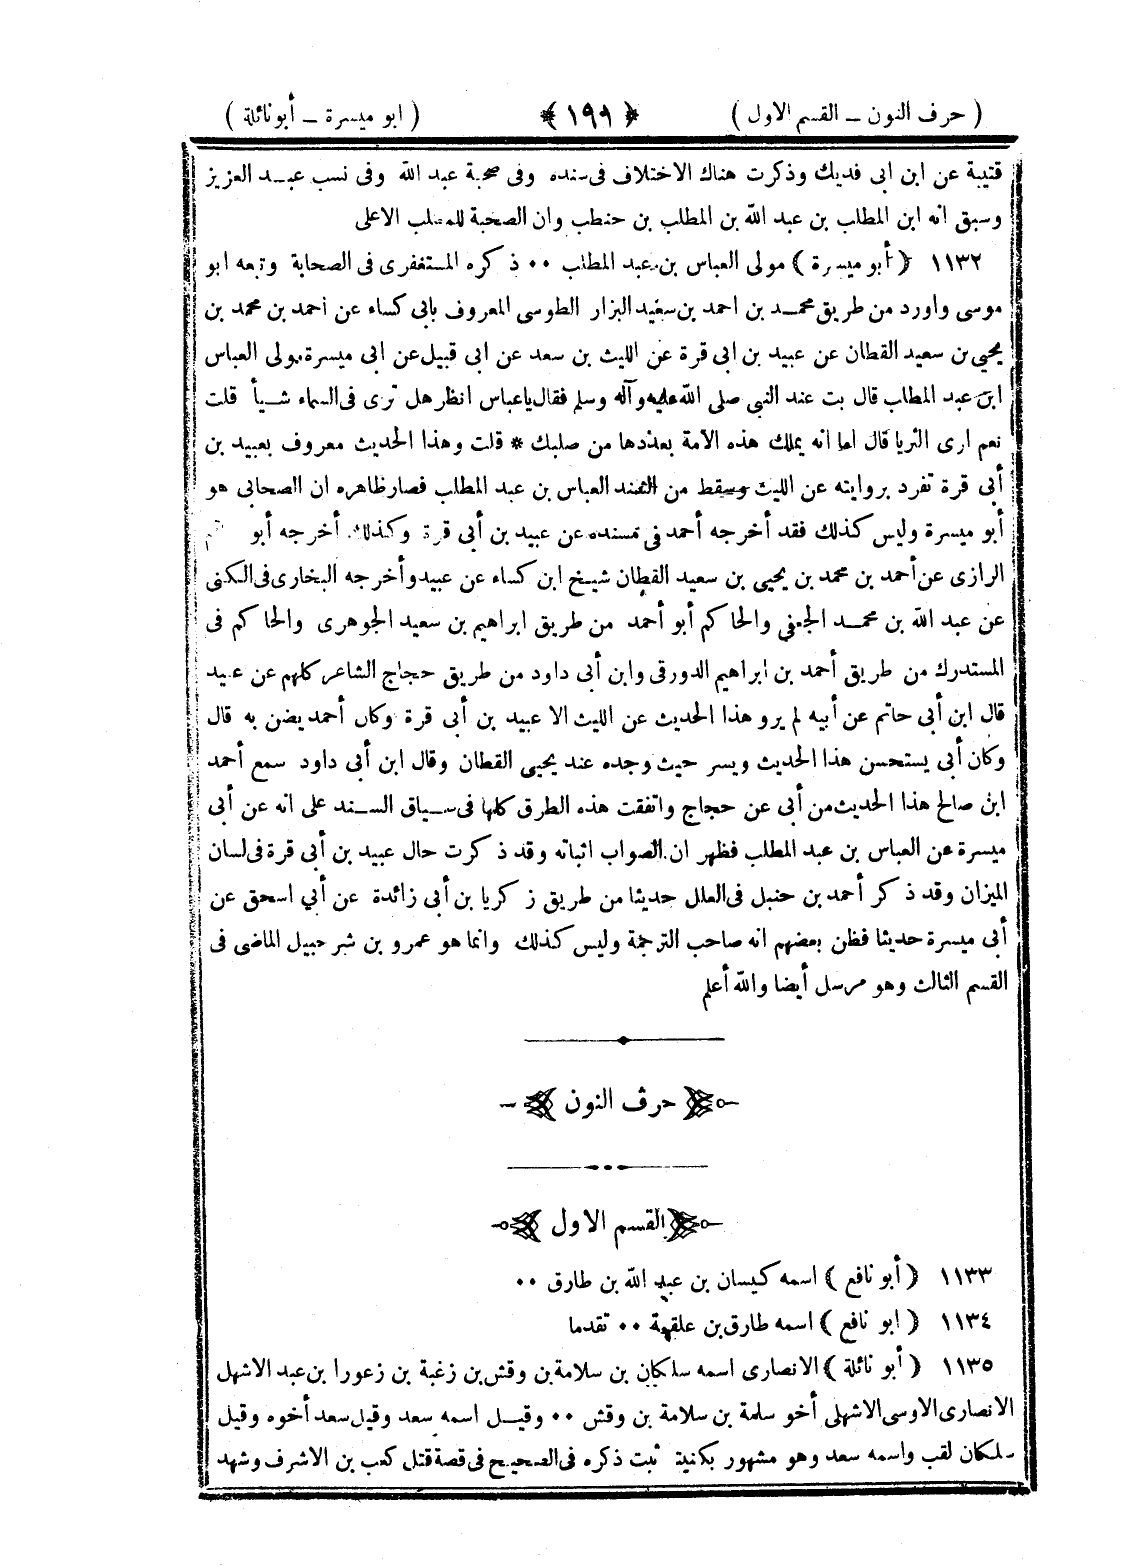 ( حرف النون ــ القسم الاول ) ﴿ ١٩٩ ﴾ ( ابو ميسرة ــ أبو نائلة )
قتيبة عن ابن ابى فديك وذكرت هناك الاختلاف فى سنده وفى صحبة عبد الله وفى نسب عبد العزيز
وسبق انه ابن المطلب بن عبد الله بن المطلب بن حنطب وان الصحبة للمطلب الاعلى
١١٣٢ ( أبو ميسرة ) مولى العباس بن عبد المطلب ٠٠ ذكره المستغفرى فى الصحابة وتبعه ابو
موسى واورد من طريق محمد بن احمد بن سعيد البزار الطوسى المعروف بابى كساء عن احمد بن محمد بن
يحيى بن سعيد القطان عن عبيد بن ابى قرة عن الليث بن سعد عن ابى قبيل عن ابى ميسرة مولى العباس
ابن عبد المطلب قال بت عند النبى صلى الله عليه وآله وسلم فقال ياعباس انظر هل ترى فى السماء شيأ قلت
نعم ارى الثريا قال اما انه يملك هذه الامة بعددها من صلبك * قلت وهذا الحديث معروف بعبيد بن
أبى قرة تفرد بروايته عن الليث وسقط من السند العباس بن عبد المطلب فصار ظاهره ان الصحابى هو
أبو ميسرة وليس كذلك فقد أخرجه أحمد فى مسنده عن عبيد بن أبى قرة وكذلك أخرجه أبو
الرازى عن أحمد بن محمد بن يحيى بن سعيد القطان شيخ ابن كساء عن عبيد وأخرجه البخارى فى الكنى
عن عبد الله بن محمد الجعفى والحاكم أبو أحمد من طريق ابراهيم بن سعيد الجوهرى والحاكم فى
المستدرك من طريق أحمد بن ابراهيم الدورقى وابن أبى داود من طريق حجاج الشاعر كلهم عن عبيد
قال ابن أبى حاتم عن أبيه لم يرو هذا الحديث عن الليث الا عبيد بن أبى قرة وكان أحمد يضن به قال
وكان أبى يستحسن هذا الحديث ويسر حيث وجده عند يحيى القطان وقال ابن أبى داود سمع أحمد
ابن صالح هذا الحديث من أبى عن حجاج واتفقت هذه الطرق كلها فى سياق السند على انه عن أبى
ميسرة عن العباس بن عبد المطلب فظهر ان الصواب اثباته وقد ذكرت حال عبيد بن أبى قرة فى لسان
الميزان وقد ذكر أحمد بن حنبل فى العلل حديثا من طريق زكريا بن أبى زائدة عن أبي اسحق عن
أبى ميسرة حديثا فظن بعضهم انه صاحب الترجمة وليس كذلك وانما هو عمرو بن شرحبيل الماضى فى
القسم الثالث وهو مرسل أيضا والله أعلم
حرف النون
القسم الاول
١١٣٣ ( أبو نافع ) اسمه كيسان بن عبد الله بن طارق ٠٠
١١٣٤ ( ابو نافع ) اسمه طارق بن علقمة ٠٠ تقدما
١١٣٥ ( أبو نائلة ) الانصارى اسمه سلكان بن سلامة بن وقش بن زغبة بن زعورا بن عبد الاشهل
الانصارى الاوسى الاشهلى أخو سلمة بن سلامة بن وقش ٠٠ وقيل اسمه سعد وقيل سعد أخوه وقيل
سلكان لقب واسمه سعد وهو مشهور بكنيته ثبت ذكره فى الصحيح فى قصة قتل كعب بن الاشرف وشهد